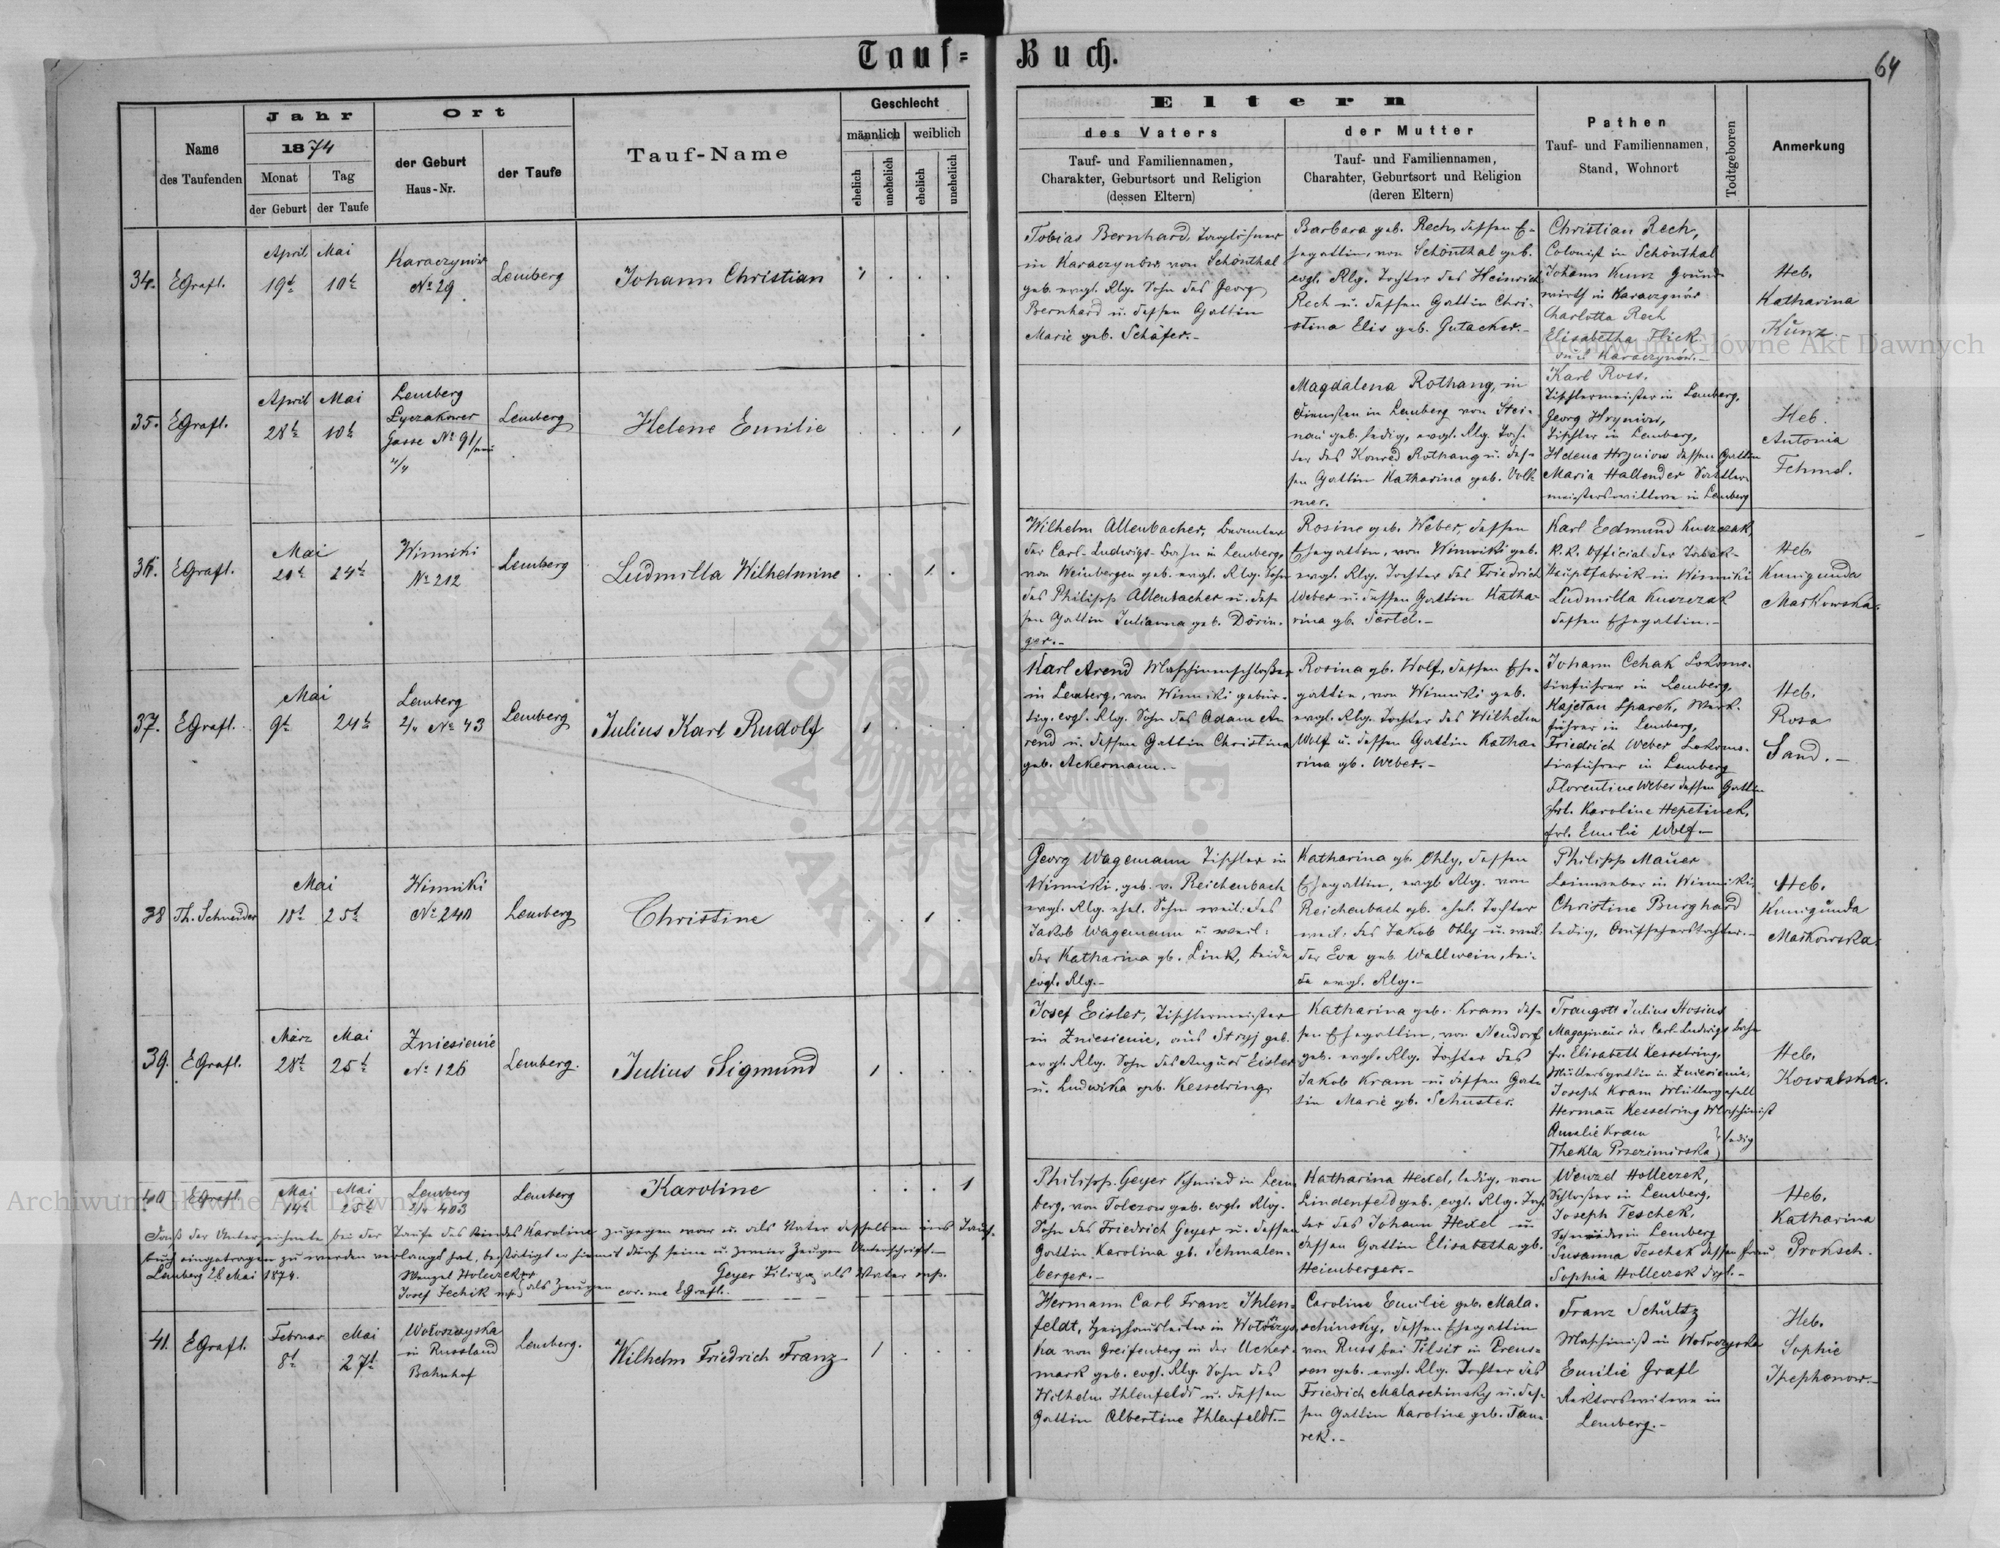 Tauf=
Buch.
64
Name
des Taufenden
Jahr
1874
Monat
Tag
der Geburt
der Taufe
Ort
der Geburt
Haus-Nr.
der Taufe
Tauf-Name
Geschlecht
männlich
weiblich
ehelich
unehelich
ehelich
unehelich
Eltern
des Vaters
Tauf- und Familiennamen,
Charakter, Geburtsort und Religion
(dessen Eltern)
der Mutter
Tauf- und Familiennamen,
Charahter, Geburtsort und Religion
(deren Eltern)
Pathen
Tauf- und Familiennamen,
Stand, Wohnort
Todtgeboren
Anmerkung
34.
EGrafl.
April
Mai
19t
10t
Karaczynów
No 29
Lemberg
Johann Christian
1
Tobias Bernhard, Taglöhner
in Karaczynów von Schönthal
geb. evgl. Rlg. Sohn des Georg
Bernhard u. dessen Gattin
Marie geb. Schäfer.-
Barbara geb. Rech, dessen E-
hegattin, von Schönthal geb.
evgl. Rlg. Tochter des Heinrich
Rech u. dessen Gattin Chri-
stina Elis geb. Gutacker.-
Christian Rech,
Colonist in Schönthal
Johann Kunz Grund-
wirth in Karaczynów
Charlotta Rech
Elisabetha Flick
Karaczynów.-
Heb.
Katharina
Kunz.
35.
EGrafl.
April
Mai
28t
10t
Lemberg
Łyczakower
Gasse No 91/neu
4/4
Lemberg
Helene Emilie
1
Magdalena Rothang, in
Diensten in Lemberg von Stei-
nau geb. ledig, evgl. Rlg. Toch-
ter des Konrad Rothang u. des-
sen Gattin Katharina geb. Volk
mer.
Karl Ross.
Tischlermeister in Lemberg,
Georg Hryniow,
Tischler in Lemberg,
Helena Hryniow dessen Gattin
Maria Hallender Sattler-
meisterswittwe in Lemberg
Heb.
Antonia
36.
EGrafl.
Mai
24t
Winniki
No 212
Lemberg
Ludmilla Wilhelmine
1
Wilhelm Allenbacher, Beamter
der Carl-Ludwigs-Bahn in Lemberg,
von Weinbergen geb. evgl. Rlg. Sohn
des Philipp Allenbacher u. des-
sen Gattin Julianna geb. Dörin-
ger.-
Rosine geb. Weber, dessen
Ehegattin, von Winniki geb.
evgl. Rlg. Tochter des Friedrich
Weber u. dessen Gattin Katha-
rina gb.
Karl Edmund Kuszczak,
K.K. Official der Tabak-
Hauptfabrik in Winniki
Ludmilla Kuszczak
dessen Ehegattin.-
Heb.
Kunigunda
Markowska.
37.
EGrafl.
Mai
9t
24t
Lemberg
2/4 No 43
Lemberg
Julius Karl Rudolf
1
Karl Arend Maschinenschlosser
in Lemberg, von Winniki gebür-
tig, evgl. Rlg. Sohn des Adam A-
rend u. dessen Gattin Christina
geb. Ackermann.-
Rosina gb. Wolf, dessen Ehe-
gattin, von Winniki geb.
evgl. Rlg. Tochter des Wilhelm
Wolf u. dessen Gattin Katha-
rina gb. Weber.-
Johann Cehak Lokomo-
tivführer in Lemberg,
Kajetan Sparek, Werk-
führer in Lemberg,
Friedrich Weber Lokomo-
tivführer in Lemberg
Florentine Weber dessen Gattin
Frl. Karoline Hepetinek,
Frl. Emilie Wolf-
Heb.
Rosa
Sand.-
38
Th. Schneider
Mai
18t
25t
Winniki
No 240
Lemberg
Christine
1
Georg Wagemann Tischler in
Winniki, geb. v. Reichenbach
evgl. Rlg. ehel. Sohn weil: des
Jakob Wagemann u. weil:
der Katharina gb. Link, beide
evgl. Rlg.-
Katharina gb. Ohly, dessen
Ehegattin, evgl Rlg. von
Reichenbach gb. ehel. Tochter
weil: des Jakob Ohly u. weil:
der Eva geb Wallwein, bei-
de evgl. Rlg.-
Philipp Mauer
Leinweber in Winniki,
Christine Burghard
ledig, Aufseherstochter.-
Heb.
Kunigunda
Markowska.
39.
EGrafl.
März
Mai
28t
25t
Zniesienie
No 126
Lemberg.
Julius Sigmund
1
Josef Eisler, Tischlermeister
in Zniesienie, aus Stryj geb.
evgl. Rlg. Sohn des August Eisler
u. Ludwika geb. Kesselring.
Katharina geb. Kram des-
sen Ehegattin, von Neudorf
geb. evgl. Rlg. Tochter des
Jakob Kram u dessen Gat-
tin Marie gb. Schuster.
Traugott Julius Hosius
Magazineur der Carl Ludwigs Bahn
fr. Elisabeth Kesselring,
Müllersgattin in Zniesienie,
Joseph Kram Müllergesell
Hermann Kesselring Maschinist
Amalie Kram
Thekla Przezimirska } ledig
Heb.
Kowalska.
40
EGrafl
Mai
Mai
14t
25t
Lemberg
2/4 403
Lemberg
Karoline
1
Daß der Unterzeichnete bei der Taufe des Kindes Karoline zugegen war u. als Vater desselben ins Tauf-
buch eingetragen zu werden verlangt hat, bestätigt er hiemit durch seine u. zweier Zeugen Unterschrift.-
Lemberg 28 Mai 1874.
Wenzel Holeczek
Josef Teschik mp } als Zeugen
Geyer Filipp als Vater mp.
cor. me EGrafl.
Philipp Geyer Schmied in Lem-
berg, von Tolczow geb. evgl. Rlg.
Sohn des Friedrich Geyer u. dessen
Gattin Karolina gb. Schmalen-
berger.-
Katharina Hexel, ledig, von
Lindenfeld geb. evgl. Rlg. Toch-
ter des Johann Hexel u
dessen Gattin Elisabetha gb.
Heimberger.-
Wenzel Holleczek,
Schlosser in Lemberg,
Joseph Teschek,
Schneider in Lemberg
Susanna Teschek dessen Frau
Sophia Holleczek
Heb.
Katharina
Proksch.
41.
EGrafl.
Februar
Mai
8t
27t
Wołoszczyska
in Russland
Bahnhof
Lemberg.
Wilhelm Friedrich Franz
1
Hermann Carl Franz Ihlen-
feldt, Heizhausleiter in
ka von Greifenberg in der Ucker-
mark geb. evgl. Rlg. Sohn des
Wilhelm Ihlenfeldt u. dessen
Gattin Albertine Ihlenfeldt.-
Caroline Emilie geb. Mala-
schinsky, dessen Ehegattin
von Russ bei Tilsit in Preus-
sen geb. evgl. Rlg. Tochter des
Friedrich Malaschinsky u. des-
sen Gattin Karoline geb. Tau-
rek.-
Franz Schultz
Maschinist in
Emilie Grafl
Rektorswitwe in
Lemberg.-
Heb.
Sophie
Archiwum Główne Akt Dawnych
Archiwum Główne Akt Dawnych